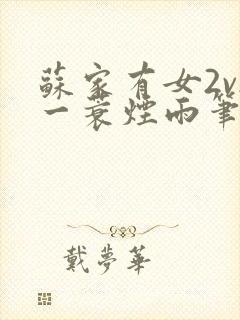 蘇家有女2v
一蓑煙雨筆
戴夢華